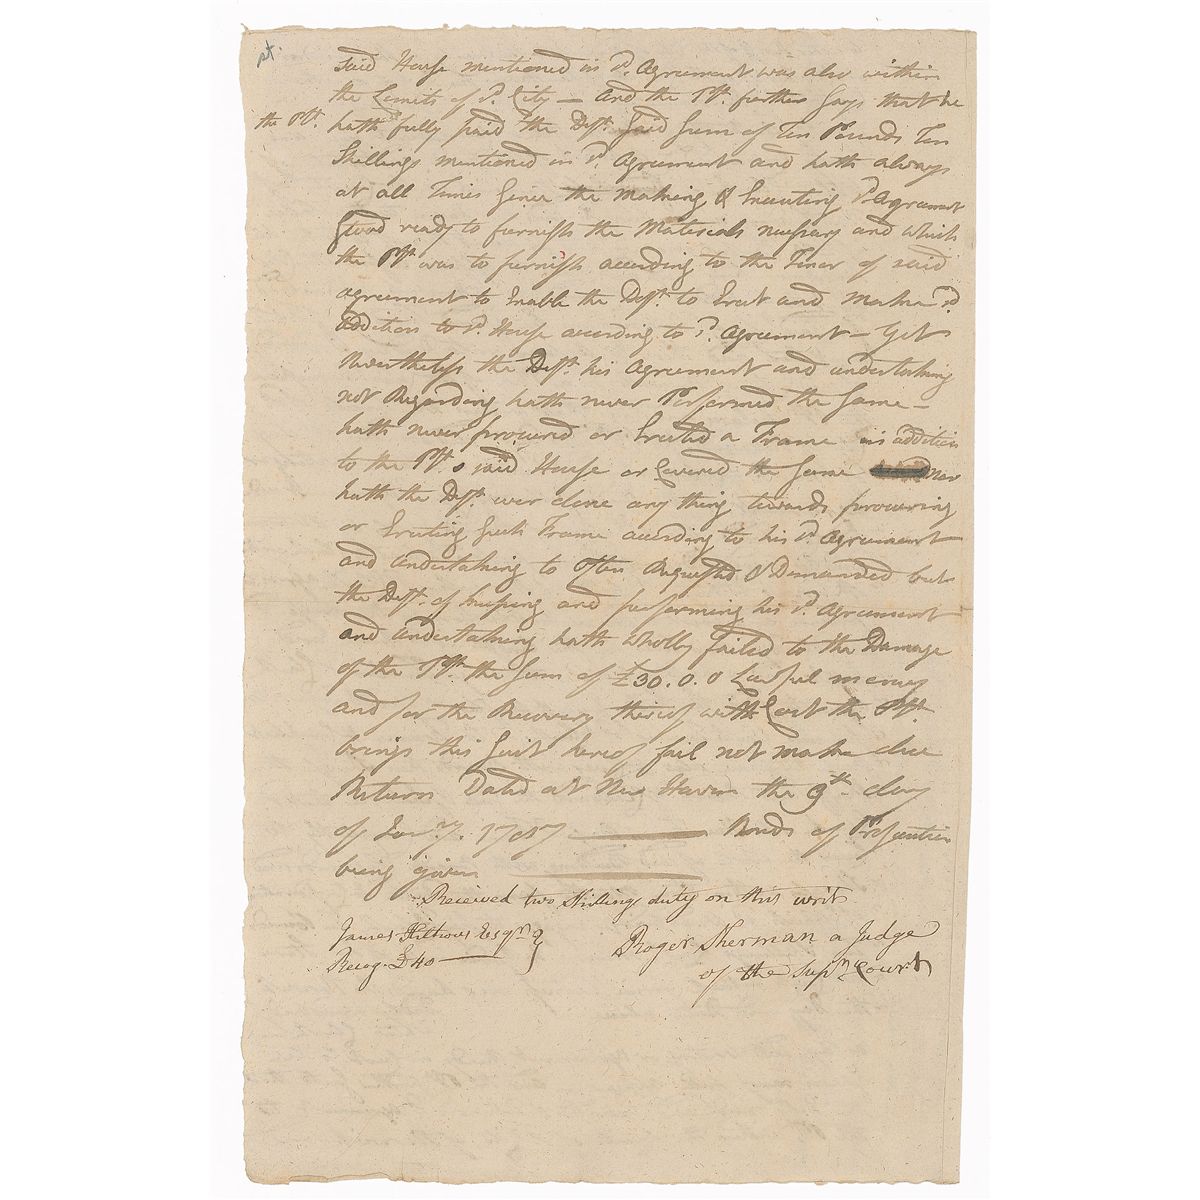 st.
said House mentioned in sd. Agreement was also within
the Limits of sd. City — And the Plt. further Says that he
the Plt. hath fully paid the Deft. said Sum of Ten Pounds Ten
Shillings mentioned in sd. Agreement and hath always
at all Times Since the making & Executing sd. Agreement
Stood ready to furnish the Materials necessary and which
the Plt. was to furnish according to the Tenor of said
agreement to Enable the Deft. to Erect and make sd.
addition to sd. House according to sd. Agreement — Yet
Nevertheless the Deft. his Agreement and undertaking
not Regarding hath never Performed the Same —
hath never procured or Erected a Frame in addition
to the Plt.s said House or Covered the Same nor
hath the Deft. ever done any thing towards procuring
or Erecting such Frame according to his sd. Agreement
and undertaking tho often Requested & Demanded but
the Deft. of keeping and performing his sd. Agreement
and undertaking hath wholly failed to the Damage
of the Plt. the Sum of £30.0.0 Lawful money
and for the Recovery thereof with Cost the Plt.
brings this Suit hereof fail not make due
Return Dated at New Haven the 9th day
of Jany. 1787 Bonds of Prosecution
being given
Received two Shillings duty on this writ
James Esqr.
Recog. £40
Roger Sherman a Judge
of the Supr. Court